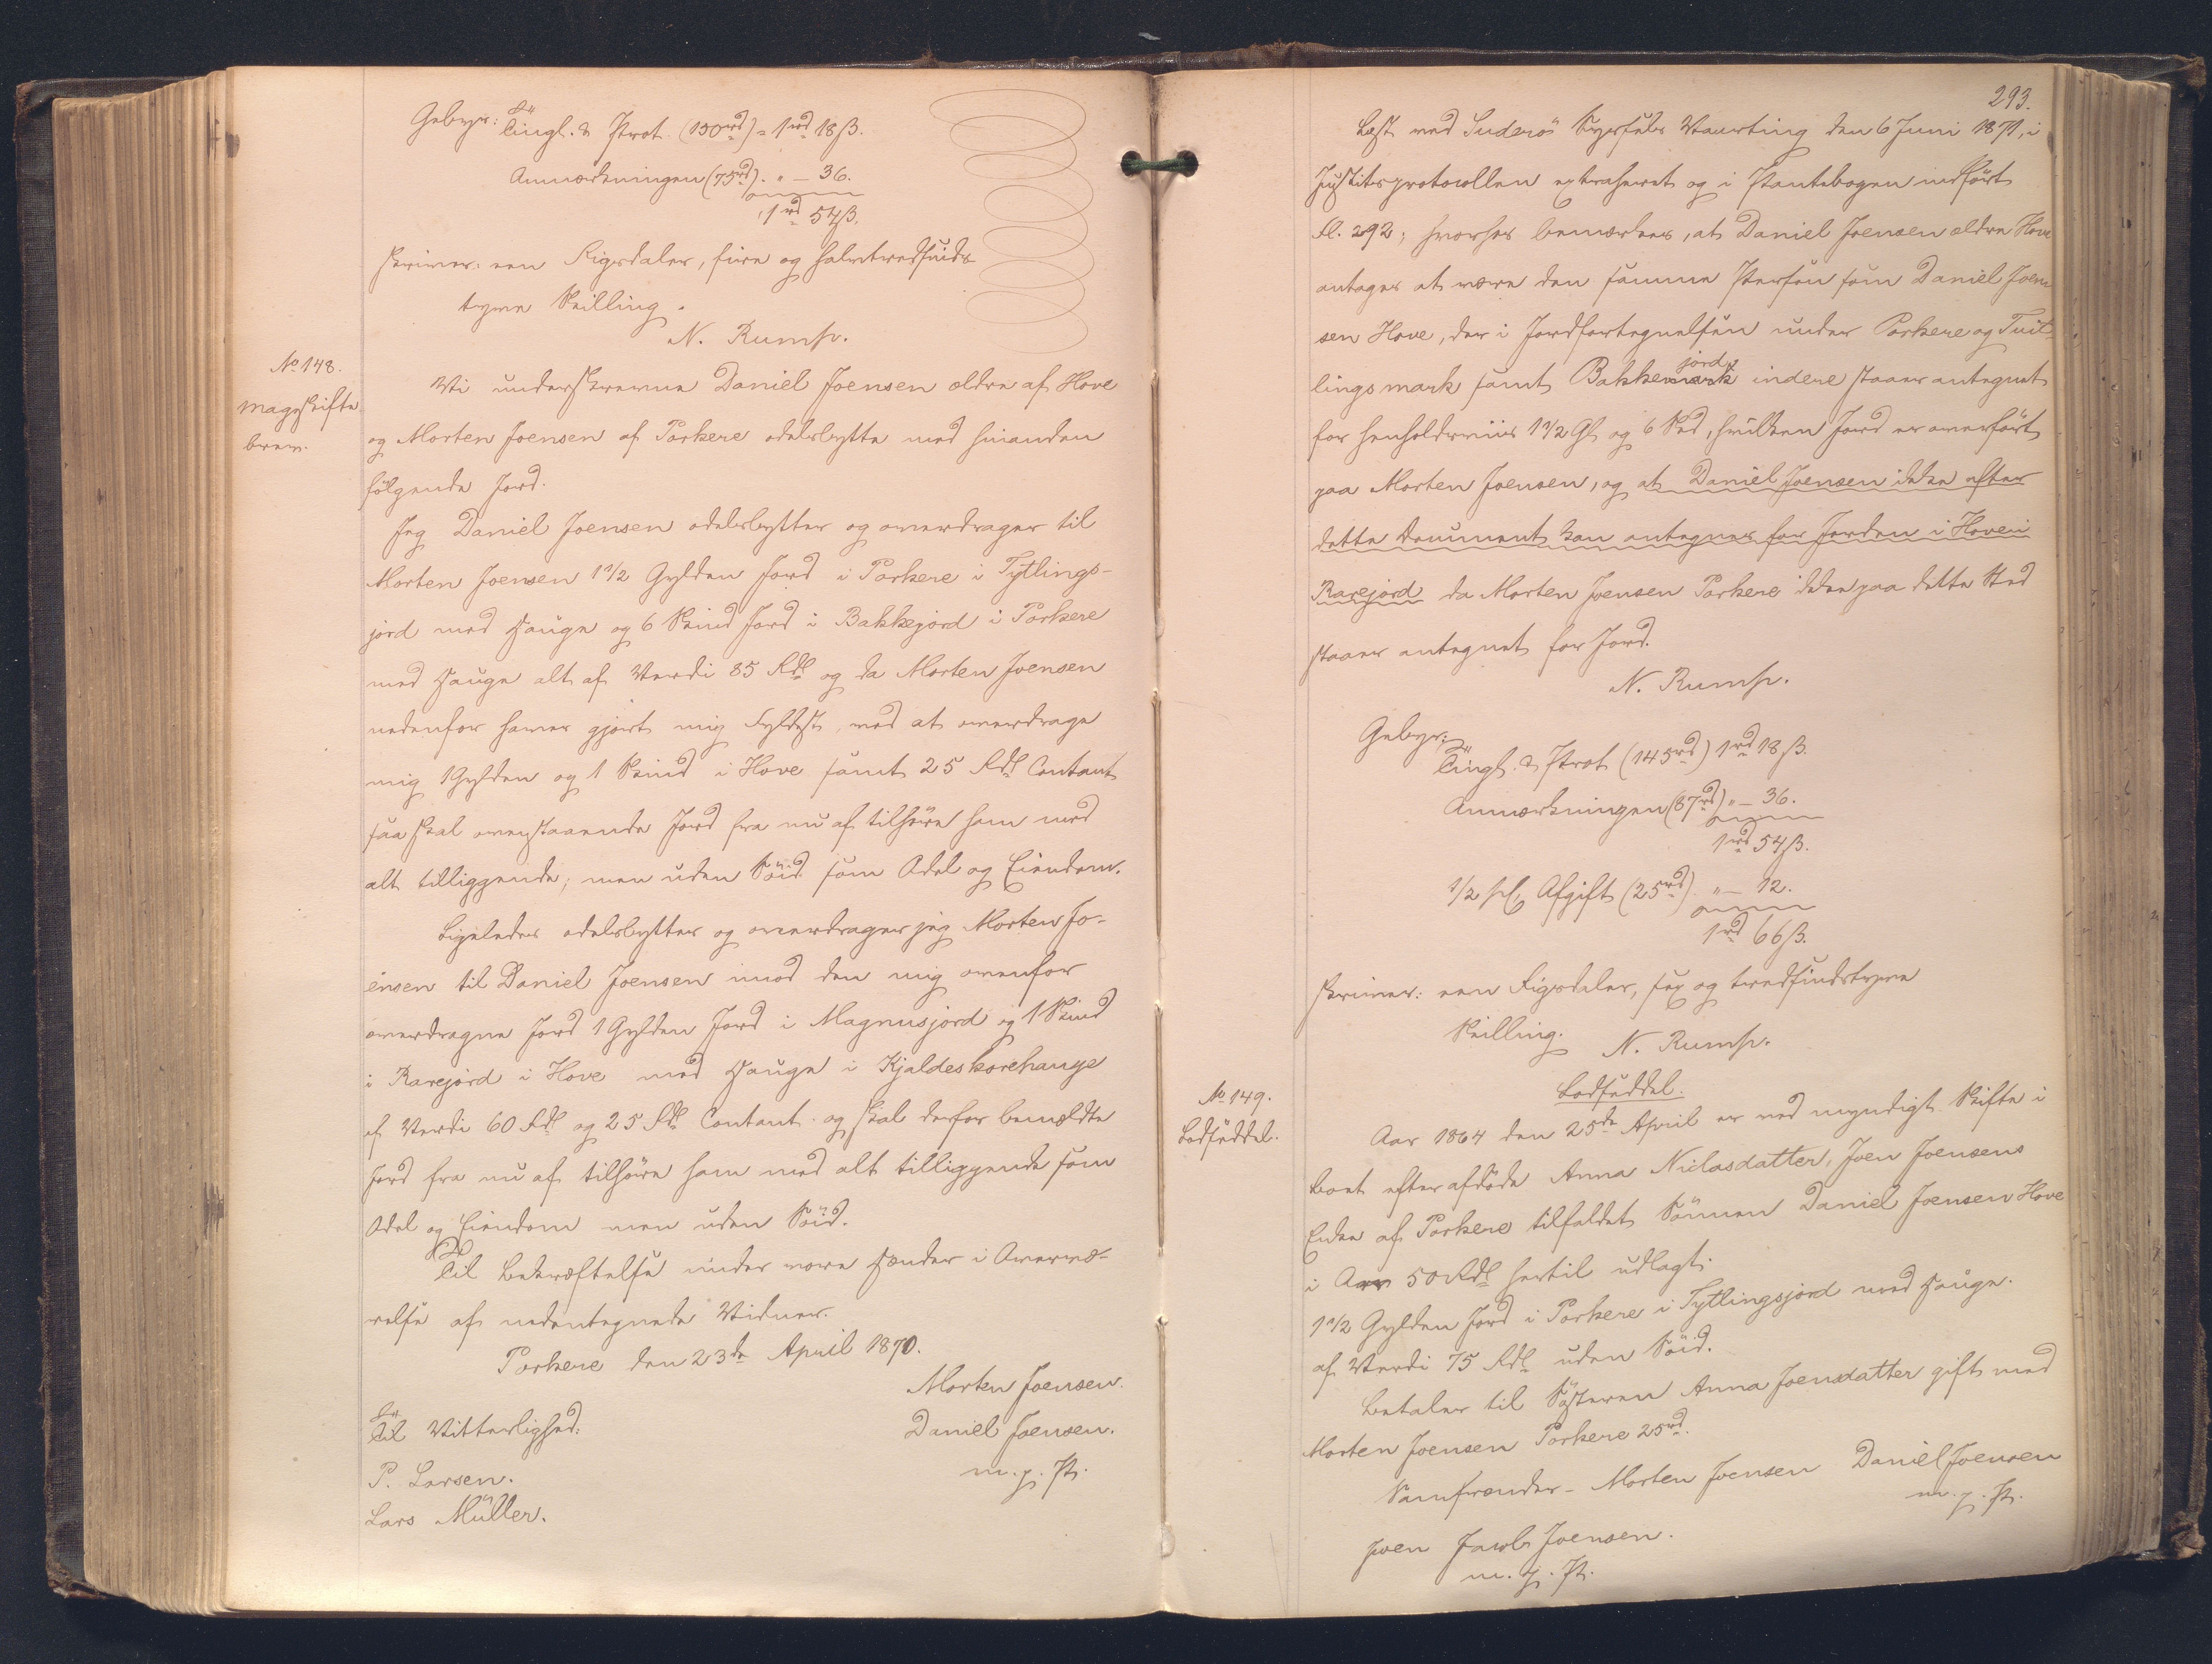 Gebyr: Tingl. & Prot. (150rd) = 1rd 18 ß.
Anmærkningen (75rd). " — 36.
1rd 54 ß.
skriver: een Rigsdaler, fire og halvtredsinds
tyve Skilling.
N. Rump.
No 148.
Mageskifte
brev.
Vi underskrevne Daniel Joensen ældre af Hove
og Morten Joensen af Porkere odelsbytte med hinanden
følgende Jord.
Jeg Daniel Joensen odelsbytter og overdrager til
Morten Joensen 1 1/2 Gylden Jord i Porkere i Tytlings-
jörd med Hauge og 6 Skind Jord i Bakkejord i Porkere
med Hauge alt af Værdi 85 Rdl og da Morten Joensen
nedenfor haver gjort mig Fyldest, med at overdrage
mig 1 Gylden og 1 Skind i Hove samt 25 Rdl Contant
saa skal ovenstaaende Jord fra nu af tilhøre ham med
alt tilliggende; men uden Söid som Odel og Eiendom.
Ligeledes odelsbytter og overdrager jeg Morten Jo-
ensen til Daniel Joensen imod den mig ovenfor
overdragne Jord 1 Gylden Jord i Magnusjord og 1 Skind
i Rarejord i Hove med Hauge i Kjaldeskorehauge
af Værdi 60 Rdl og 25 Rdl Contant og skal derfor bemeldte
Jord fra nu af tilhøre ham med alt tilliggende som
Odel og Eiendom men uden Söid.
Til Bekræftelse under vore Hænder i Overvæ-
relse af nedentegnede Vidner.
Porkere den 23de April 1870.
Morten Joensen.
Til Vitterlighed: Daniel Joensen.
P. Larsen. m. p. P.
Lars Müller.
293.
Læst ved Suderö Syssels Vaarting den 6 Juni 1871, i
Justitsprotocollen extraheret og i Pantebogen indført
Fl. 292; hvorhos bemærkes, at Daniel Joensen ældre Hove
antages at være den samme Person som Daniel Joen
sen Hove, der i Jordfortegnelsen under Porkere og Tuit-
lings mark samt Bakkemark jord indere staaer antegnet
for henholdsviis 1 1/2 Gl og 6 Skd, hvilken Jord er overført
paa Morten Joensen, og at Daniel Joensen ikke efter
dette Document kan antegnes for Jorden i Hove i
Rarejord da Morten Joensen Porkere ikke paa dette Sted
staaer antegnet for Jord.
N. Rump.
Gebyr:
Tingl. & Prot. (145rd) 1rd 18 ß.
Anmærkningen (87rd) " — 36.
1rd 54 ß.
1/2 pCt Afgift (25rd) " — 12.
1rd 66 ß.
skriver: een Rigsdaler, sex og tredsindstyve
Skilling. N. Rump.
No 149.
Lodseddel.
Lodseddel.
Aar 1864 den 25de April er ved myndigt Skifte i
Boet efter afdöde Anna Niclasdatter, Joen Joensens
Enke af Porkere tilfaldet Sönnen Daniel Joensen Hove
i Arv 50 Rdl hertil udlagt:
1 1/2 Gylden Jord i Porkere i Tytlingsjord med Hauge.
af Værdi 75 Rdl uden Söid.
Betaler til Søsteren Anna Joensdatter gift med
Morten Joensen Porkere 25rd.
Samfrænder – Morten Joensen Daniel Joensen
m. p. P.
Joen Jacob Joensen.
m. p. P.